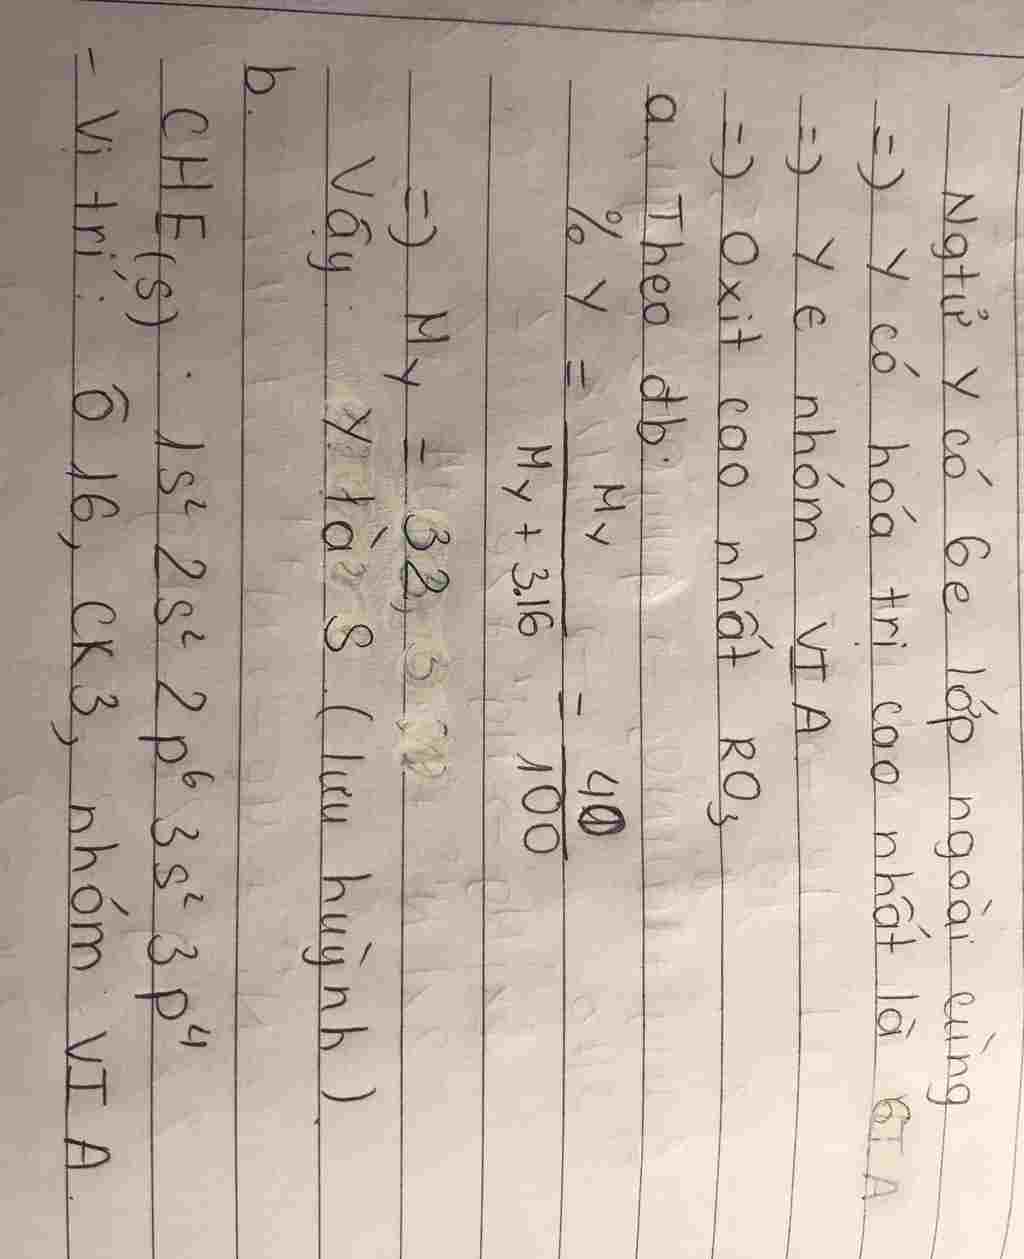 Ngtử Y có 6e lớp ngoài cùng
=) Y có hóa trị cao nhất là 6
=) Y ∈ nhóm VI A
=) Oxit cao nhất RO₃
a. Theo đb:
% Y = My / (My + 3.16) = 40 / 100
=) My = 32
Vậy Y là S (lưu huỳnh)
b.
CHE(S): 1s² 2s² 2p⁶ 3s² 3p⁴
- Vị trí: ô 16, CK3, nhóm VI A.